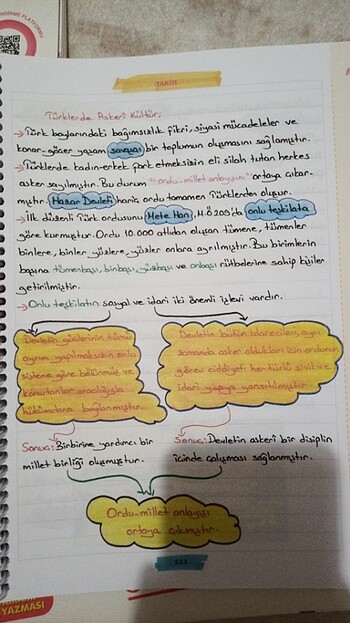 TARİH
Türklerde Askerî Kültür;
→Türk boylarındaki bağımsızlık fikri, siyasi mücadeleler ve
konar-göçer yaşam savaşçı bir toplumun oluşmasını sağlamıştır.
→Türklerde kadın-erkek fark etmeksizin eli silah tutan herkes
asker sayılmıştır. Bu durum "ordu-millet anlayışını" ortaya çıkar-
mıştır. Hazar Devleti hariç ordu tamamen Türklerden oluşur.
→İlk düzenli Türk ordusunu Mete Han, M.Ö 209'da onlu teşkilata
göre kurmuştur. Ordu 10.000 atlıdan oluşan tümene, tümenler
binlere, binler yüzlere, yüzler onlara ayrılmıştır. Bu birimlerin
başına tümenbaşı, binbaşı, yüzbaşı ve onbaşı rütbelerine sahip kişiler
getirilmiştir.
→Onlu teşkilatın sosyal ve idari iki önemli işlevi vardır.
Devletin güçlerinin tümü
ayrım yapılmaksızın onlu
sisteme göre bölünmüş ve
komutanlar aracılığıyla
hükümdara bağlanmıştır.
Devletin bütün idarecileri, aynı
zamanda asker oldukları için ordunun
görev ciddiyeti her türlü sivil ve
idari yapıya yansıtılmıştır.
Sonuç: Birbirine yardımcı bir
millet birliği oluşmuştur.
Sonuç: Devletin askerî bir disiplin
içinde çalışması sağlanmıştır.
Ordu-millet anlayışı
ortaya çıkmıştır.
YAZMASI